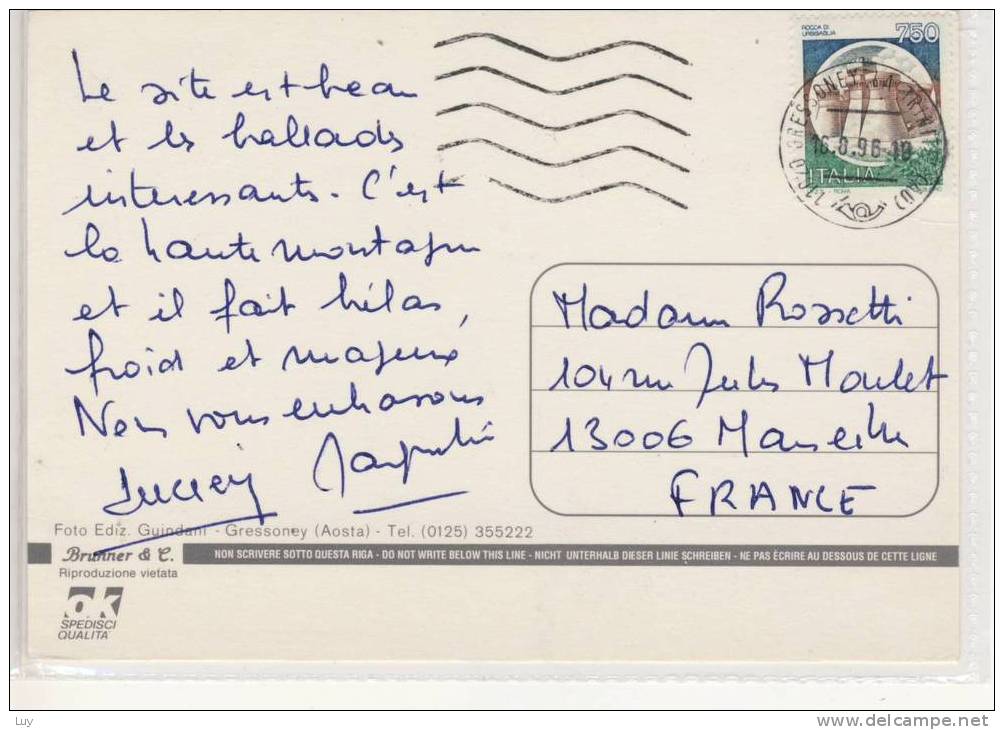 Le site est beau
et les ballades
interessants. C'est
la haute montagne
et il fait hélas,
froid et nuageux
Nous vous embrassons
Lucien Jacqueline
ROCCA DI
URBISAGLIA
750
16.8.96-18
ITALIA
ROMA
Madame Rossetti
104 rue Jules Moulet
13006 Marseille
FRANCE
Foto Ediz. Guindani - Gressoney (Aosta) - Tel. (0125) 355222
Brunner & C.
NON SCRIVERE SOTTO QUESTA RIGA - DO NOT WRITE BELOW THIS LINE - NICHT UNTERHALB DIESER LINIE SCHREIBEN - NE PAS ÈCRIRE AU DESSOUS DE CETTE LIGNE
Riproduzione vietata
ok
SPEDISCI
QUALITA'
Luy
delcampe.net